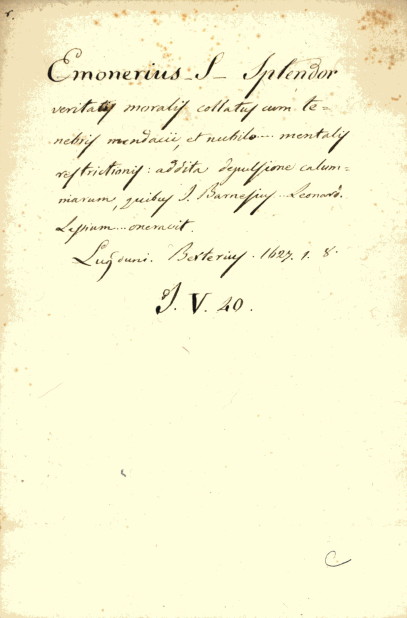 Emonerius S Splendor
veritatis moralis collatus cum te=
nebris mendacii, et nubilo... mentalis
restrictionis: addita depulsione calum-
niarum, quibus J. Barnesius.. Leonard.
Lessium... oneravit.
Lugduni. Besterius. 1627. 1. 8.
J. V. 40.
C